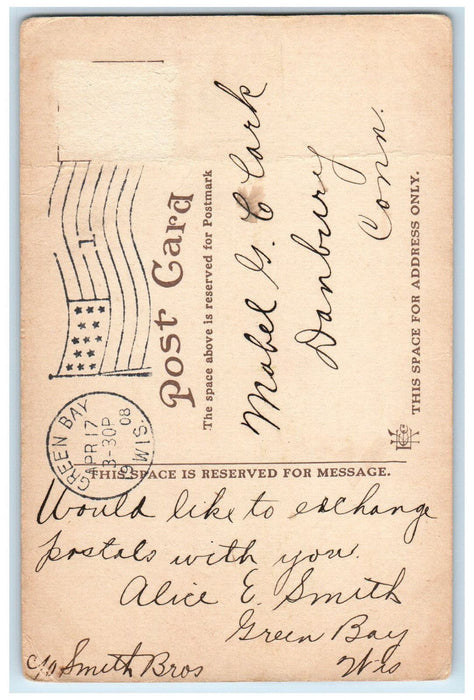 Post Card
The space above is reserved for Postmark
Mabel G. Clark
Danbury
Conn.
THIS SPACE FOR ADDRESS ONLY.
1
GREEN BAY, WIS.
APR 17
3-30P
1908
THIS SPACE IS RESERVED FOR MESSAGE.
Would like to exchange
postals with you.
Alice E. Smith
Green Bay
Wis
c/o Smith Bros